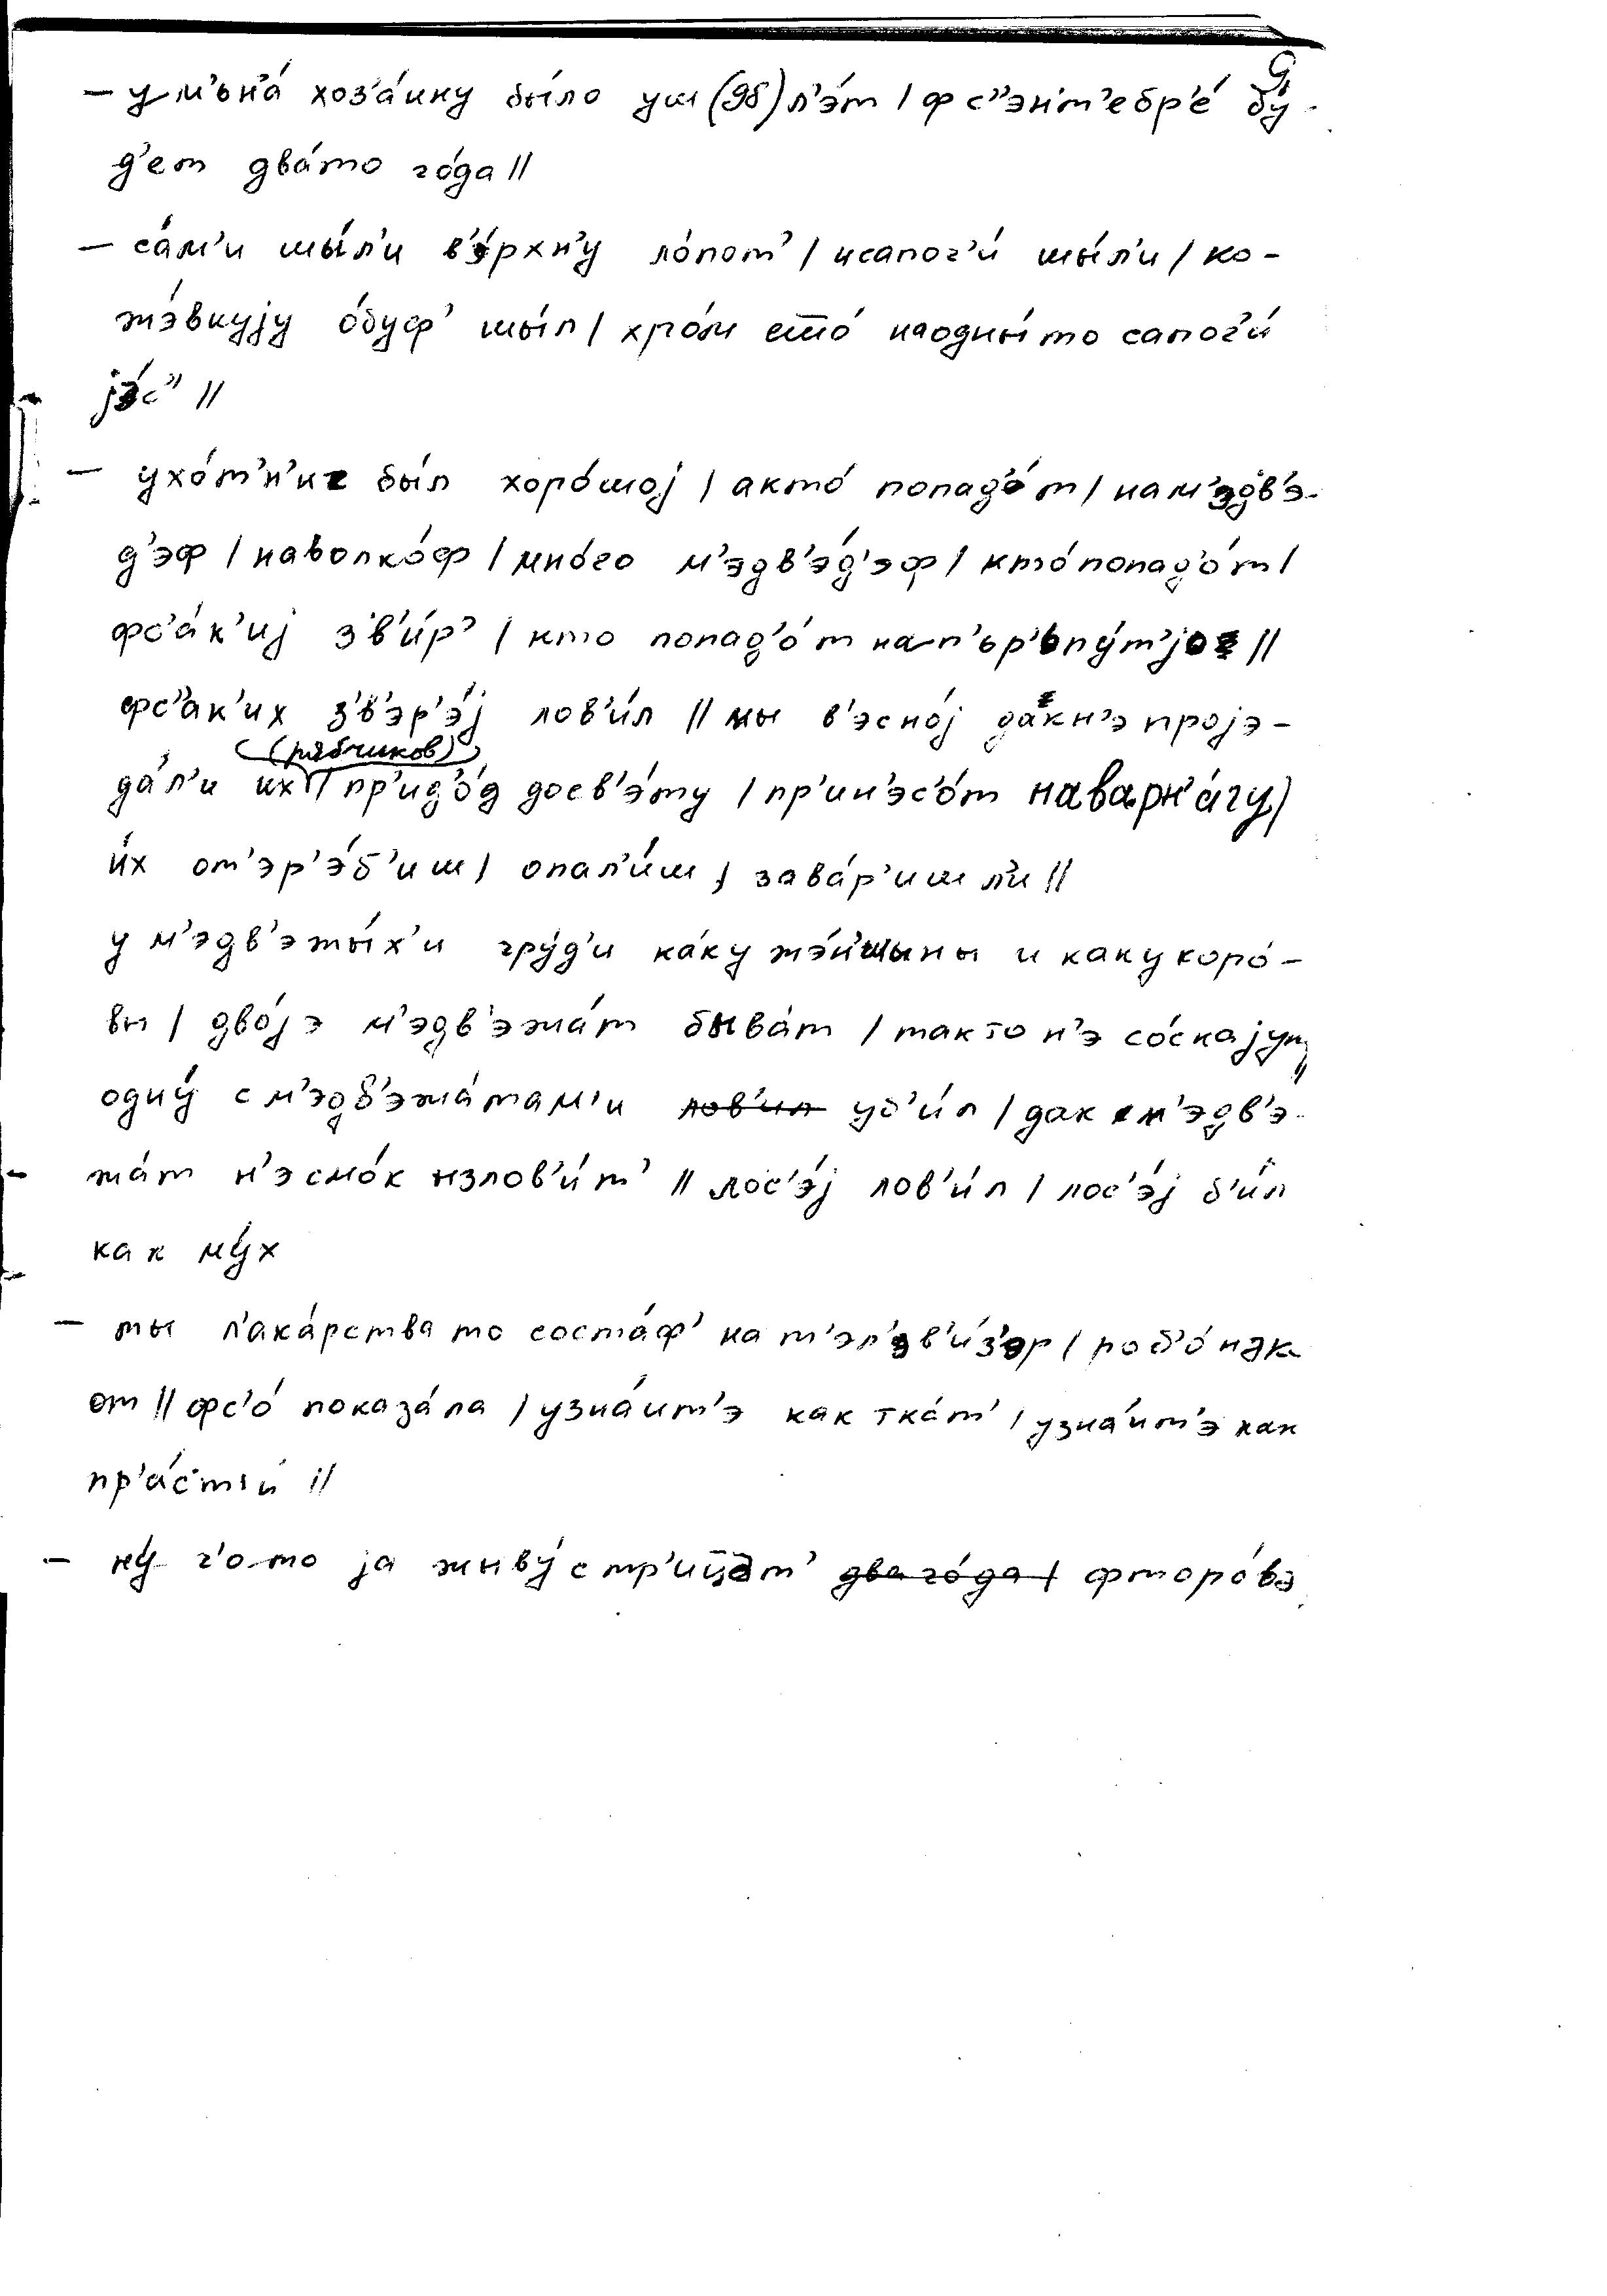 9
– у м'ьн'а́ хоз'а́ину бы́ло уш (96) л'э́т / ф с"эн'т'ебр'е́ бу́-
д'ет два́то го́да //
– са́м'и шы́л'и в'э́рхн'у ло́пот' / исапог'и́ шы́л'и / ко-
жэ́внују о́буф' шы́л / хро́м што́ наодны́то сапог'и́
јэ́с" //
– ухо́т'н'иг бы́л хоро́шој / акто́ попад'о́т / нам'эдв'э-
д'эф / наволко́ф / мно́го м'эдв'э́д'эф / кто́попад'о́т /
фс'а́к'иј з'в'и́р' / кто попад'о́т нап'ър'ьпу́т'јо //
фс"ак'их з'в'эр'э́ј лов'и́л // мы в'эсно́ј да́кн'э пројэ-
(рябчиков)
да́л'и их / пр'ид'о́д досв'э́ту / пр'ин'эс'о́т наварн'а́гу /
и́х от'эр'э́б'иш / опал'и́ш / зава́р'иш л'и //
у м'эдв'эжы́х'и гру́д'и ка́ку жэ́н'шыны и какукоро́-
вы / дво́јэ м'эдв'эжа́т быва́т / такто н'э со́скајут //
одну́ с м'эдв'эжа́там'и лов'ил уб'и́л / дак м'эдв'э-
жа́т н'эсмо́к излов'и́т' // лос'э́ј лов'и́л / лос'э́ј б'и́л
как му́х
– ты л'ака́рствато соста́ф' на т'эл'эв'и́з'ор / роб'о́нак
от // фс'о́ показа́ла / узна́ит'э как тка́т' / узна́ит'э как
пр'а́с'т'и //
– ну́ г'ото ја жыву́ с тр'иццат' два го́да / фторо́вэ